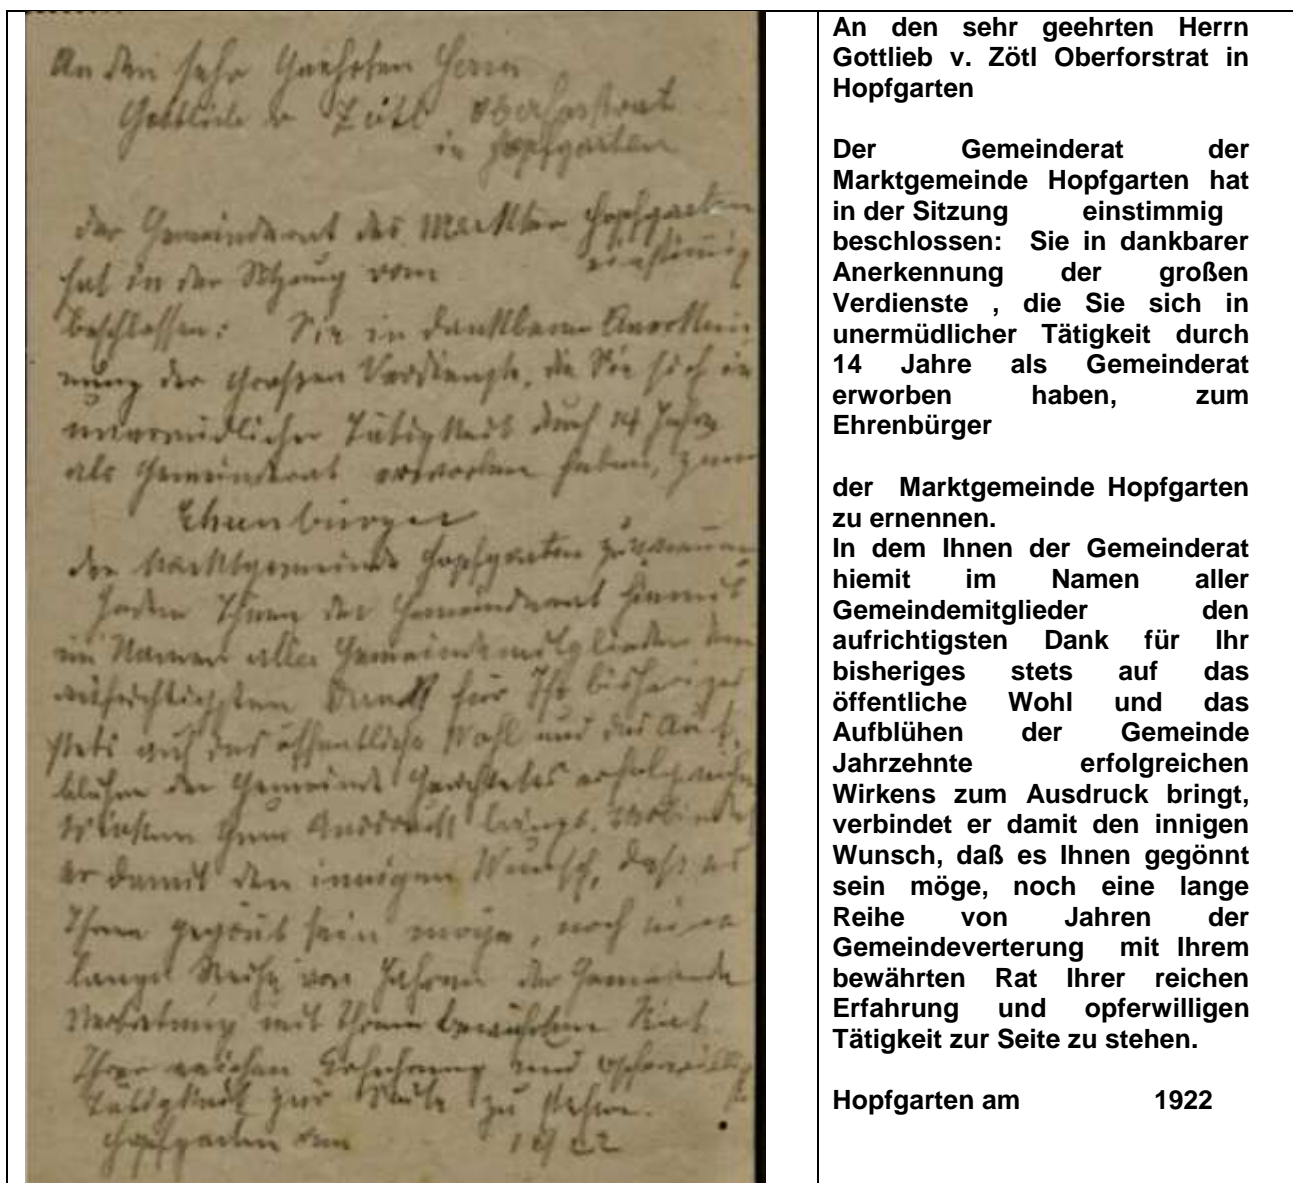 An den sehr Geehrten Herrn
Gottlieb v Zötl Oberforstrat
in Hopfgarten
der Gemeinderat des Marktes Hopfgarten
hat in der Sitzung vom einstimmig
beschlossen: Sie in dankbarer Anerken
nung der Großen Verdienste, die Sie sich in
unermüdlicher Tätigkeit durch 14 Jahre
als Gemeinderat erworben haben, zum
Ehrenbürger
der Marktgemeinde Hopfgarten zu ernennen
Ihnen der Gemeinderat hiemit
im Namen aller Gemeindemitglieder den
aufrichtigsten Dank für Ihr bisheriges
stets auf das öffentliche Wohl und das Auf
blühen der Gemeinde Gerichtetes erfolgreiches
Wirken zum Ausdruck bringt, verbindet
er damit den innigen Wunsch, daß es
Ihnen gegönt sein möge, noch eine
lange Reihe von Jahren der Gemeinde
Vertretung mit Ihrem bewährten Rat
Ihrer reichen Erfahrung und opferwillig
Tätigkeit zur Seite zu stehen.
Hopfgarten am 1922
An den sehr geehrten Herrn
Gottlieb v. Zötl Oberforstrat in
Hopfgarten
Der Gemeinderat der
Marktgemeinde Hopfgarten hat
in der Sitzung einstimmig
beschlossen: Sie in dankbarer
Anerkennung der großen
Verdienste , die Sie sich in
unermüdlicher Tätigkeit durch
14 Jahre als Gemeinderat
erworben haben, zum
Ehrenbürger
der Marktgemeinde Hopfgarten
zu ernennen.
In dem Ihnen der Gemeinderat
hiemit im Namen aller
Gemeindemitglieder den
aufrichtigsten Dank für Ihr
bisheriges stets auf das
öffentliche Wohl und das
Aufblühen der Gemeinde
Jahrzehnte erfolgreichen
Wirkens zum Ausdruck bringt,
verbindet er damit den innigen
Wunsch, daß es Ihnen gegönnt
sein möge, noch eine lange
Reihe von Jahren der
Gemeindeverterung mit Ihrem
bewährten Rat Ihrer reichen
Erfahrung und opferwilligen
Tätigkeit zur Seite zu stehen.
Hopfgarten am 1922